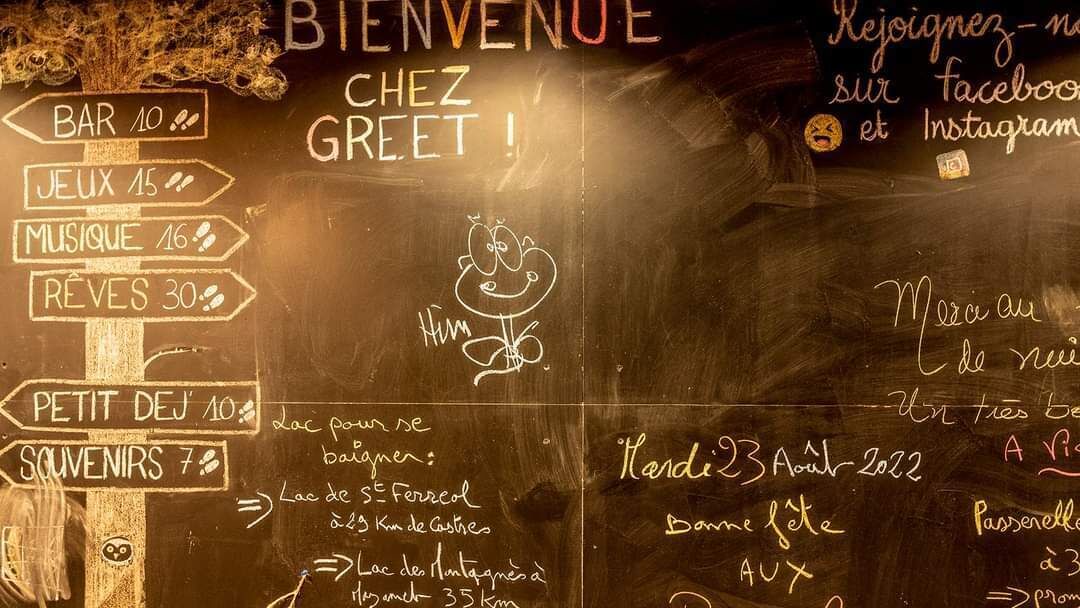 BIENVENUE
CHEZ
GREET !
Rejoignez-
sur Faceboo
et Instagram
BAR 10
JEUX 15
MUSIQUE 16
RÊVES 30
PETIT DEJ' 10
SOUVENIRS 7
Merci au
de
Un très be
Lac pour se
baigner:
=> Lac de St Ferreol
à 29 Km de Castres
=> Lac des Montagnès à
Mazamet 35 Km
Mardi 23 Août 2022
Bonne fête
AUX
A Vi
Passerelle
à 3
=>